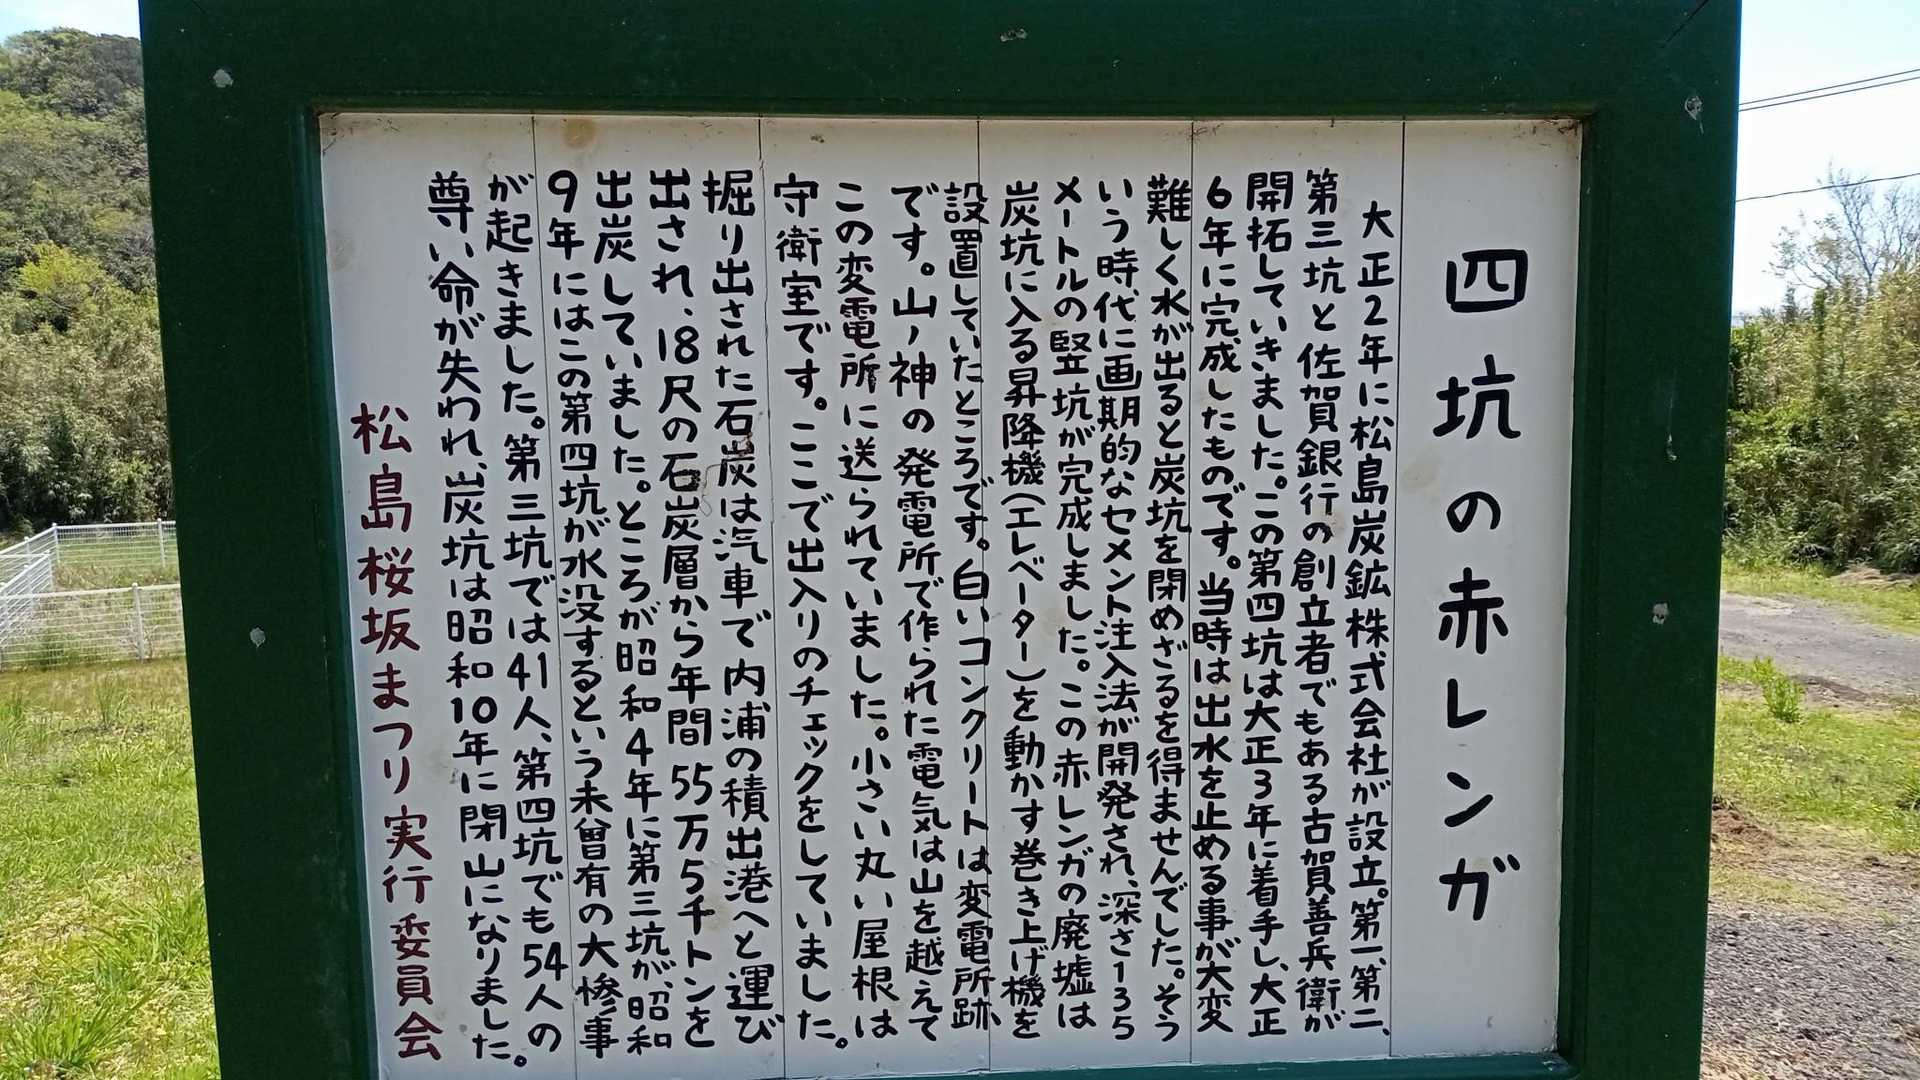 四坑の赤レンガ
大正2年に松島炭鉱株式会社が設立。第一、第二、
第三坑と佐賀銀行の創立者でもある古賀善兵衛が
開拓していきました。この第四坑は大正3年に着手し、大正
6年に完成したものです。当時は出水を止める事が大変
難しく水が出ると炭坑を閉めざるを得ませんでした。そう
いう時代に画期的なセメント注入法が開発され、深さ135
メートルの竪坑が完成しました。この赤レンガの廃墟は
炭坑に入る昇降機(エレベーター)を動かす巻き上げ機を
設置していたところです。白いコンクリートは変電所跡、
です。山ノ神の発電所で作られた電気は山を越えて
この変電所に送られていました。小さい丸い屋根は
守衛室です。ここで出入りのチェックをしていました。
掘り出された石炭は汽車で内浦の積出港へと運び
出され、18尺の石炭層から年間55万5千トンを
出炭していました。ところが昭和4年に第三坑が、昭和
9年にはこの第四坑が水没するという未曾有の大惨事
が起きました。第三坑では41人、第四坑でも54人の
尊い命が失われ、炭坑は昭和10年に閉山になりました。
松島桜坂まつり実行委員会